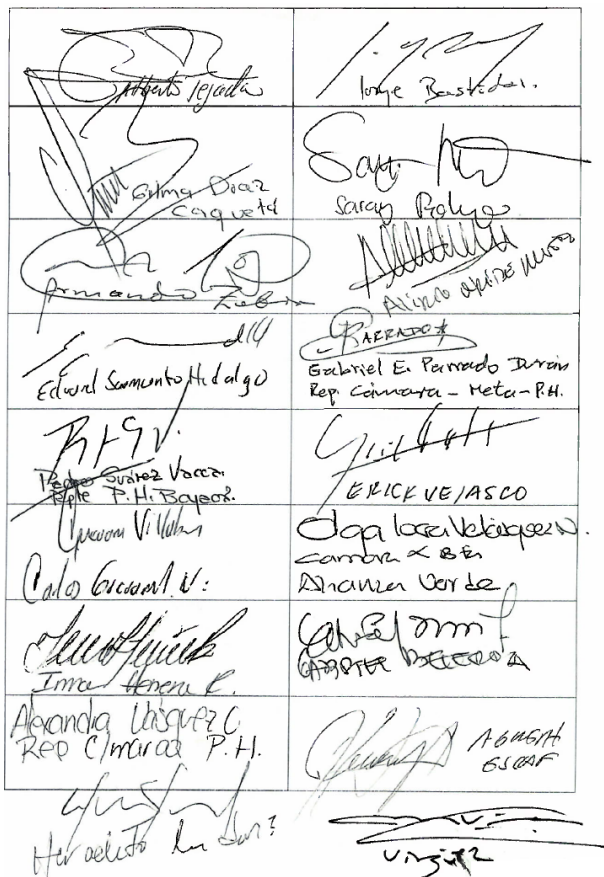 Alberto Tejada
Jorge Bastidas.
Gilma Díaz
Caquetá
Saray Robayo
Armando Zabar
Alirio Uribe Muñoz
Edward Sarmiento Hidalgo
PARRADO
Gabriel E. Parrado Durán
Rep. Cámara - Meta - P.H.
Pedro Suárez Vacca.
Rpte P.H. Boyacá.
ERICK VELASCO
Carlos
Olga Lucía Velásquez N.
Alianza Verde
Irma Herrera R.
GABRIEL BECERRA
Alexandra Vásquez C
Rep C/marca P.H.
AGMETH
ESCAF
Heraclito Landinez
Virgüez